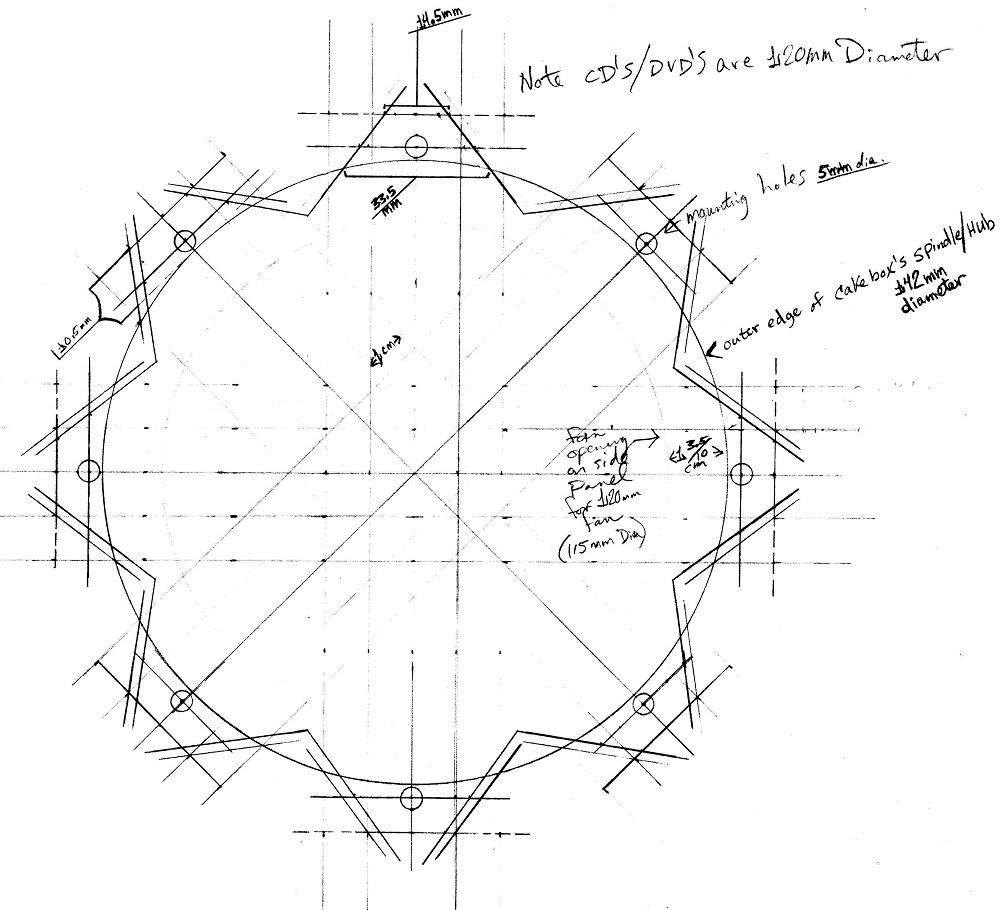 14.5mm
Note CD's/DVD's are 120mm Diameter
mounting holes 5mm dia.
33.5
mm
outer edge of cakebox's spindle/Hub
142mm
diameter
10.5mm
1cm
fan
opening
on side
panel
for 120mm
fan
(115mm Dia)
1 3.5/10
cm